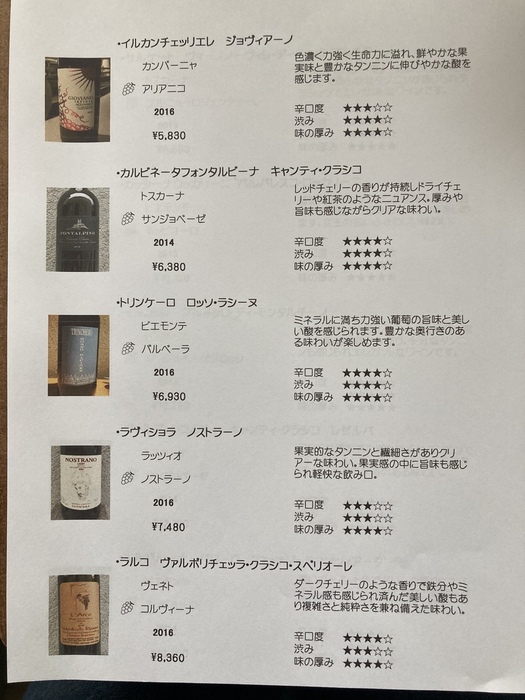 ・イルカンチェッリエレ　ジョヴィアーノ
カンパーニャ
アリアニコ
2016
¥5,830
色濃く力強く生命力に溢れ、鮮やかな果
実味と豊かなタンニンに伸びやかな酸を
感じます。
辛口度　★★★☆☆
渋み　★★★★☆
味の厚み　★★★★☆
・カルピネータフォンタルピーナ　キャンティ・クラシコ
トスカーナ
サンジョベーゼ
2014
¥6,380
レッドチェリーの香りが持続しドライチェ
リーや紅茶のようなニュアンス。厚みや
旨味も感じながらクリアな味わい。
辛口度　★★★★☆
渋み　★★★★☆
味の厚み　★★★★☆
FONTALPINO
・トリンケーロ　ロッソ・ラシーヌ
ピエモンテ
バルベーラ
2016
¥6,930
ミネラルに満ち力強い葡萄の旨味と美し
い酸を感じられます。豊かな奥行きのあ
る味わいが楽しめます。
辛口度　★★★★☆
渋み　★★★★☆
味の厚み　★★★★☆
TRINCHERO
・ラヴィショラ　ノストラーノ
ラッツィオ
ノストラーノ
2016
¥7,480
果実的なタンニンと繊細さがありクリ
アーな味わい。果実感の中に旨味も感じ
られ軽快な飲み口。
辛口度　★★★☆☆
渋み　★★★☆☆
味の厚み　★★★★☆
NOSTRANO
・ラルコ　ヴァルポリチェッラ・クラシコ・スペリオーレ
ヴェネト
コルヴィーナ
2016
¥8,360
ダークチェリーのような香りで鉄分やミ
ネラル感も感じられ済んだ美しい酸もあ
り複雑さと純粋さを兼ね備えた味わい。
辛口度　★★★★☆
渋み　★★★☆☆
味の厚み　★★★★☆